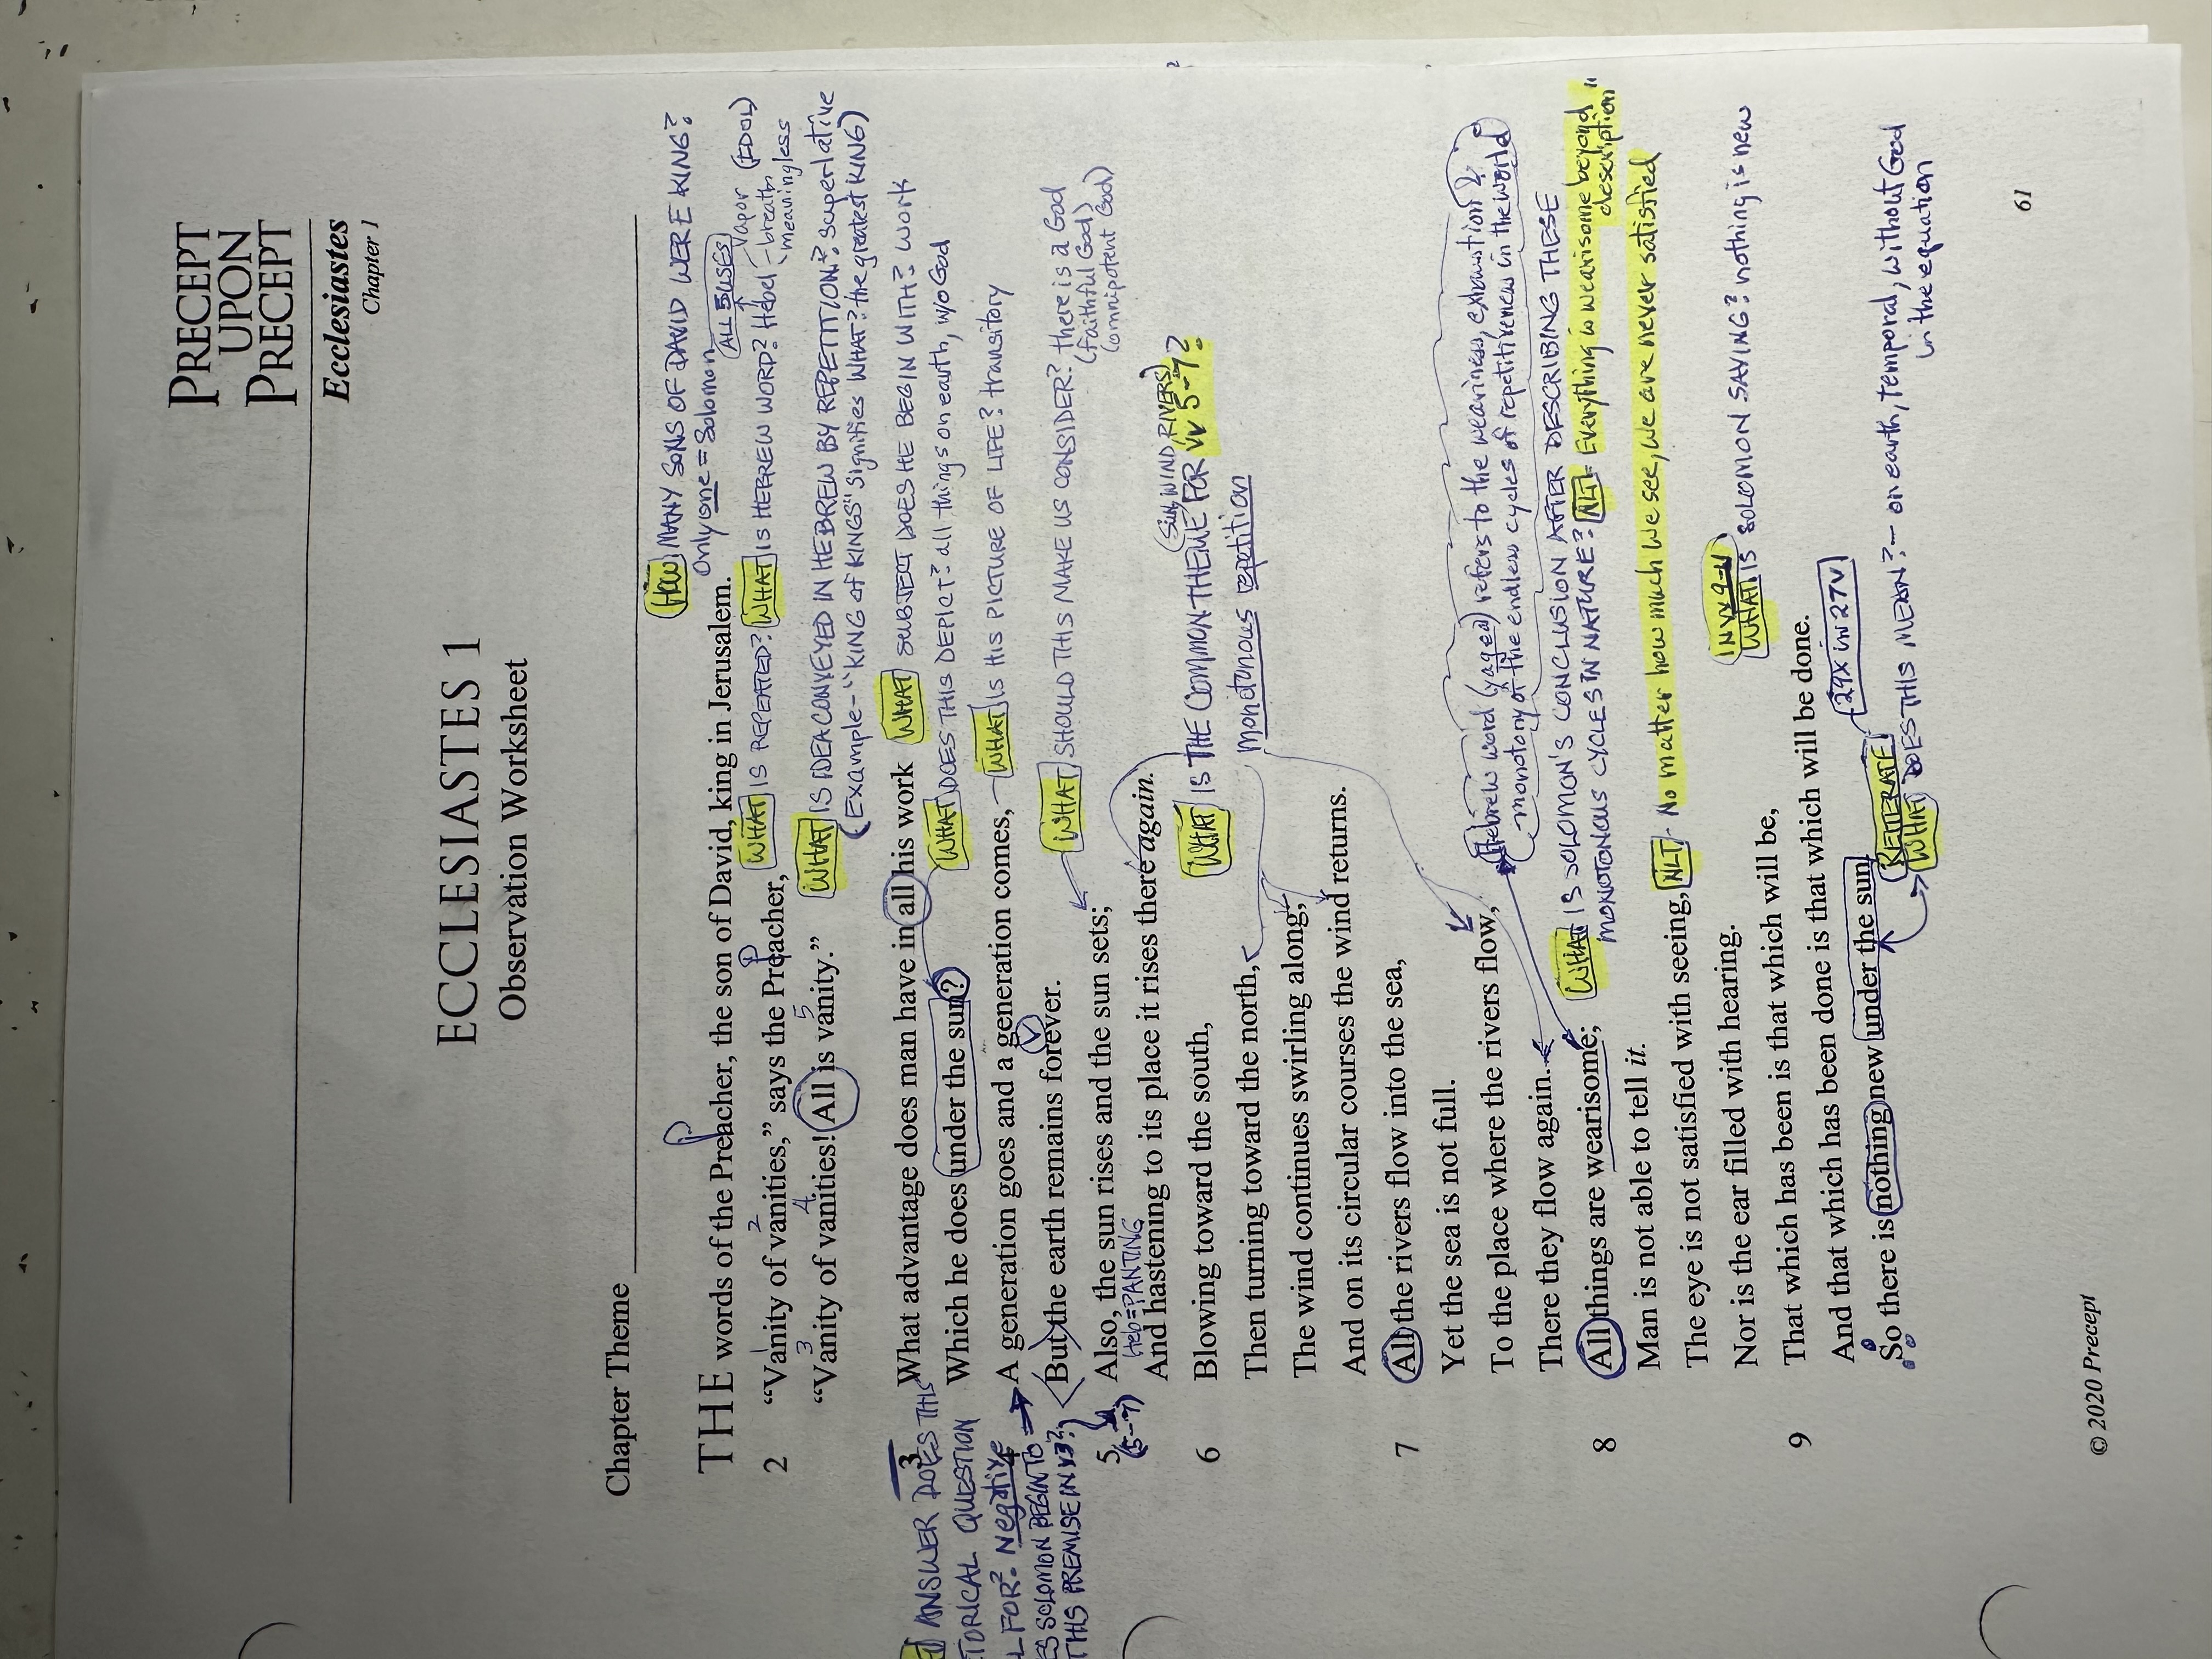 PRECEPT
UPON
PRECEPT
Ecclesiastes
Chapter 1
ECCLESIASTES 1
Observation Worksheet
Chapter Theme
HOW MANY SONS OF DAVID WERE KING?
Only one = Solomon
THE words of the Preacher, the son of David, king in Jerusalem.
ALL 5 USES
Vapor (IDOL)
2 "Vanity of vanities," says the Preacher, WHAT IS REPEATED? WHAT IS HEBREW WORD? Hebel - breath
meaningless
1 2 P
"Vanity of vanities! All is vanity." WHAT IS IDEA CONVEYED IN HEBREW BY REPETITION? superlative
3 4 5
(Example - "KING of KINGS" signifies WHAT? the greatest KING)
3 What advantage does man have in all his work WHAT SUBJECT DOES HE BEGIN WITH? Work
ANSWER DOES THIS
Which he does under the sun? WHAT DOES THIS DEPICT? all things on earth, w/o God
TORICAL QUESTION
A generation goes and a generation comes, - WHAT IS HIS PICTURE OF LIFE? transitory
L FOR? Negative
But the earth remains forever. WHAT SHOULD THIS MAKE US CONSIDER? there is a God
ES SOLOMON BEGIN TO
(faithful God)
(omnipotent God)
THIS PREMISE IN v3?
5 Also, the sun rises and the sun sets;
(5-7)
Heb = PANTING
And hastening to its place it rises there again.
(SUN, WIND, RIVERS)
6 Blowing toward the south, WHAT IS THE COMMON THEME FOR vv 5-7?
Then turning toward the north, monotonous repetition
The wind continues swirling along;
And on its circular courses the wind returns.
7 All the rivers flow into the sea,
Yet the sea is not full.
To the place where the rivers flow, Hebrew word (yagea) refers to the weariness, exhaustion &
There they flow again. monotony of the endless cycles of repetitiveness in the world
8 All things are wearisome; WHAT IS SOLOMON'S CONCLUSION AFTER DESCRIBING THESE
MONOTONOUS CYCLES IN NATURE? NLT = Everything is wearisome beyond
description"
Man is not able to tell it.
The eye is not satisfied with seeing, NLT - No matter how much we see, we are never satisfied
Nor is the ear filled with hearing.
9 That which has been is that which will be, IN vv 9-11
WHAT IS SOLOMON SAYING? nothing is new
And that which has been done is that which will be done.
So there is nothing new under the sun. 29X in 27V
REITERATE
WHAT DOES THIS MEAN? - on earth, temporal, without God
in the equation
© 2020 Precept
61